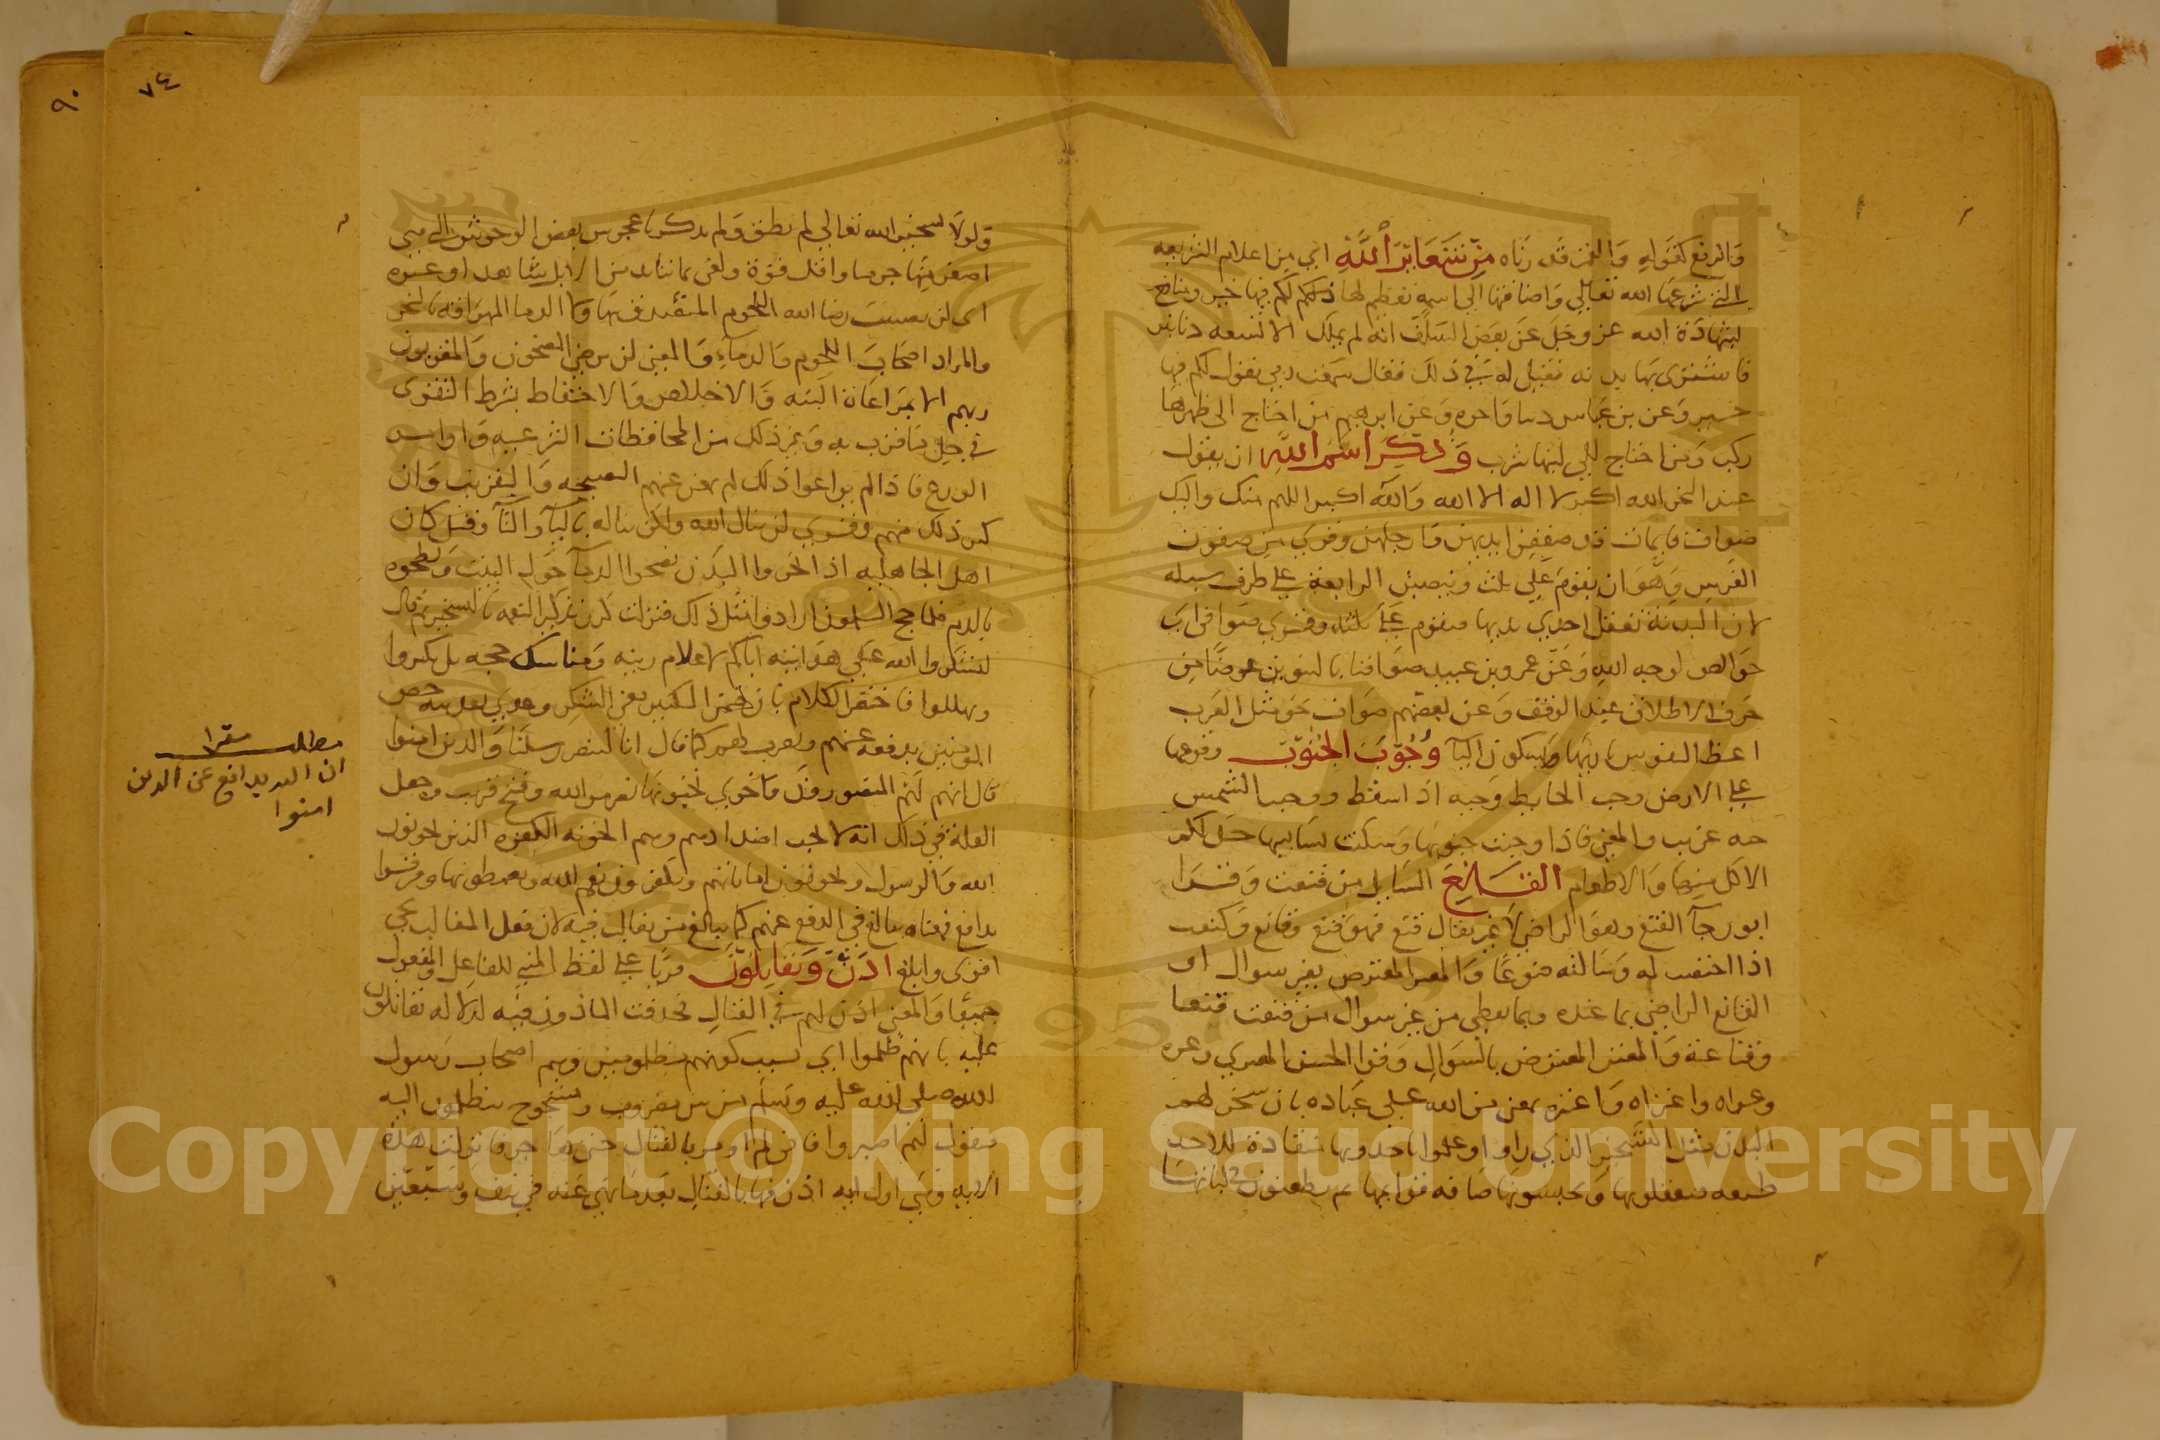 والرفع كقوله والقمر قدرناه من شعائر الله اي من اعلام الشريعه
التي شرعها الله تعالي واضافتها الي اسمه تعظيم لها ذلكم لكم فيها خير ومنافع
لشهادة الله عز وجل عن بعض السلف انه لم يملك الا تسعه دنانير
فاشتري بها بدنه فقيل له في ذلك فقال سمعت ربي يقول لكم فيها
خير وعن بن عباس دنيا واخره وعن ابرهيم من احتاج الى ظهرها
ركب ومن احتاج الي لبنها شرب وذكر اسم الله ان يقول
عند النحر الله اكبر لا اله الا الله والله اكبر اللهم منك واليك
صواف قايمات قد صففن ايديهن وارجلهن وقري من صفون
الفرس وهو ان يقوم علي ثلث وينصب الرابعة علي طرف سبكه
لان البدنة تعقل احدي يديها فتقوم علي ثلثه وقري صوافي اي
خوالص لوجه الله وعن عمرو بن عبيد صوافنا بالتنوين عوضا من
حرف الاطلاق عند الوقف وعن بعضهم صواف نحو مثل العرب
اعط القوس باريها بسكون اليا وجوب الجنوب وقوعها
علي الارض من وجب الحايط وجبه اذا سقط ووجبت الشمس
جبه غربت والمعني فاذا وجبت جنوبها وسكنت نسايسها حل لكم
الاكل منها والاطعام القانع السايل من قنعت وقرا
ابو رجآ القنع وهو الراضي لا غير يقال قنع فهو قنع وقانع وكنعت
اذا اخضعت له وسالته قنوعا والمعتر المعترض بغير سوال او
القانع الراضي بما عنده وبما يعطي من غير سوال من قنعت قنعا
وقناعة والمعتر المعترض بالسوال وقرا الحسن المعتري وعره
وعراه واعتراه واعتره بمعني من الله علي عباده بان سخر لهم
البدن مثل التسخير الذي راوا وعلموا ياخذونها منقادة للاخذ
طيعه فيعقلونها ويحبسونها صافه قوايمها ثم يطعنون في لباتها
ولولا تسخير الله تعالي لم تطق ولم تكن باعجز من بعض الوحوش التي هي
اصغر منها جرما واقل قوة وكفي بما يتابد من الابل شاهدا وعبره
اي لن يصيب رضا الله اللحوم المتصدق بها ولا الدما المهراقة بالنحر
والمراد اصحاب اللحوم والدمآء والمعني لن يرضي المضحون والمقربون
ربهم الا بمراعاة النيه والاخلاص والاحتفاظ بشرط التقوى
في حل ما قرب به وغير ذلك من المحافظات الشرعيه واوامر
الورع فاذا لم يراعوا ذلك لم تغن عنهم التضحيه والتقريب وان
كثر ذلك منهم وقري لن تنال الله ولكن تناله باليآ والتآ وقيل كان
اهل الجاهليه اذا نحروا البدن نضحوا الدمآ حول البيت ولطخوه
بالدم فلما حج المسلمون ارادوا مثل ذلك فنزلت كرر تذكير النعمه بالتسخير ثم قال
لتشكروا الله علي هدايته اياكم لاعلام دينه ومناسك حجه بان تكبروا
وتهللوا فاختصر الكلام بان ضمن التكبير معني الشكر وعدي تعديته خص
المومنين بدفعه عنهم ونصرته لهم كما قال انا لننصر رسلنا والذين امنوا
قال انهم لهم المنصورون واخري تحبونها نصر من الله وفتح قريب وجعل
العلة في ذلك انه لا يحب اضدادهم وهم الخونه الكفره الذين يخونون
الله والرسول ويخونون اماناتهم ويكفرون نعم الله ويغمطونها ومن قرا
يدافع فمعناه يبالغ في الدفع عنهم كما يبالغ من يغالب فيه لان فعل المغالب يجي
اقوى وابلغ اذن ويقاتلون قريا علي لفظ المبني للفاعل والمفعول
جميعا والمعني اذن لهم في القتال فحذف الماذون فيه لدلالة يقاتلون
عليه بانهم ظلموا اي بسبب كونهم مظلومين وهم اصحاب رسول
الله صلي الله عليه وسلم من بين مضروب ومشجوج يتظلمون اليه
فيقول لهم اصبروا فاني لم اومر بالقتال حتى هاجر فانزلت هذه
الايه وهي اول ايه اذن فيها بالقتال بعد ما نهي عنه في نيف وسبعين
مطلب مقرا
ان الله يدافع عن الذين
امنوا
٧٤
٩٠
Copyright © King Saud University
1957